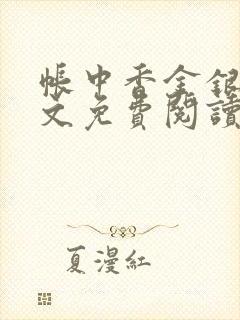 帳中香金銀
文免費閱讀
夏漫紅